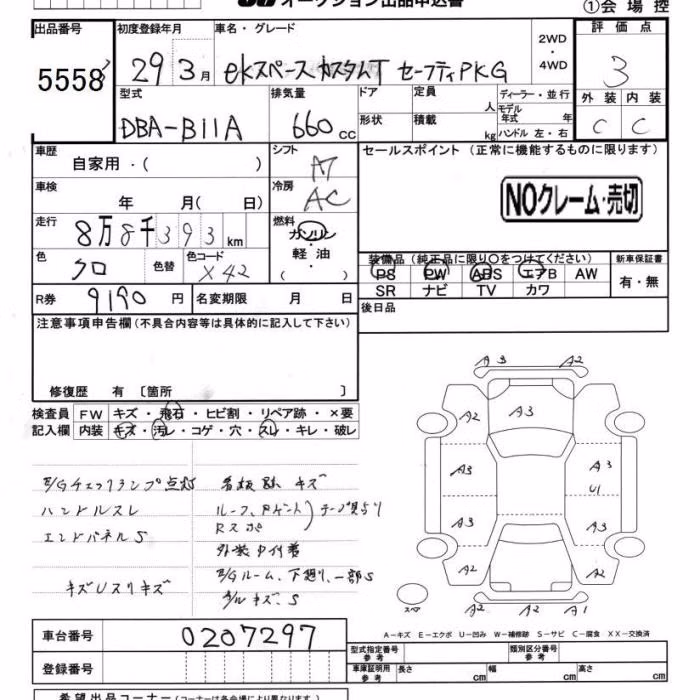 オークション出品申込書
①会場控
出品番号 初度登録年月 車名・グレード 2WD・4WD 評価点
5558 29 3月 eKスペースカスタムT セーフティPKG 3
型式 排気量 ドア 定員 人 ディーラー・並行 外装 内装
DBA-B11A 660cc 形状 積載 kg モデル年式 年 ハンドル 左・右 C C
車歴 自家用・( ) シフト AT セールスポイント (正常に機能するものに限ります)
車検 年 月( 日) 冷房 AC NOクレーム・売切
走行 8万8千393km 燃料 ガソリン・軽油・( )
色 クロ 色替 色コード X42 装備品 (純正品に限り○をつけてください) 新車保証書
PS PW ABS エアB AW 有・無
SR ナビ TV カワ
R券 9190円 名変期限 月 日 後日品
注意事項申告欄 (不具合内容等は具体的に記入して下さい)
修復歴 有 〔箇所 〕
検査員 FW キズ・飛石・ヒビ割・リペア跡・×要
記入欄 内装 キズ・汚レ・コゲ・穴・スレ・キレ・破レ
E/Gチェックランプ点灯 看板跡 キズ
ハンドルスレ ルーフ、
エンドパネルS Rスポ
外装
キズUスリキズ E/Gルーム、下廻り、一部S
A/ル キズ、S
A3 A2
A2 A3
A3 A3
U1
A3 A3
A2 A2
A2 A2 A1
スペア
A-キズ E-エクボ U-凹み W-補修跡 S-サビ C-腐食 XX-交換済
車台番号 0207297
型式指定番号 参考 類別区分番号 参考
登録番号 車庫証明用 参考 長さ cm 幅 cm 高さ cm
希望出品コーナー (コーナーは各会場により異なります)